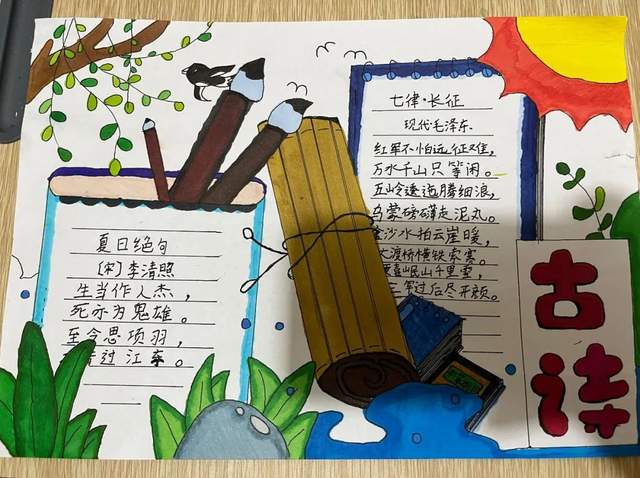 七律·长征
现代毛泽东
红军不怕远征难,
万水千山只等闲。
五岭逶迤腾细浪,
乌蒙磅礴走泥丸。
沙水拍云崖暖,
大渡桥横铁索寒。
喜岷山千里雪,
军过后尽开颜。
夏日绝句
〔宋〕李清照
生当作人杰,
死亦为鬼雄。
至今思项羽,
肯过江东。
古诗